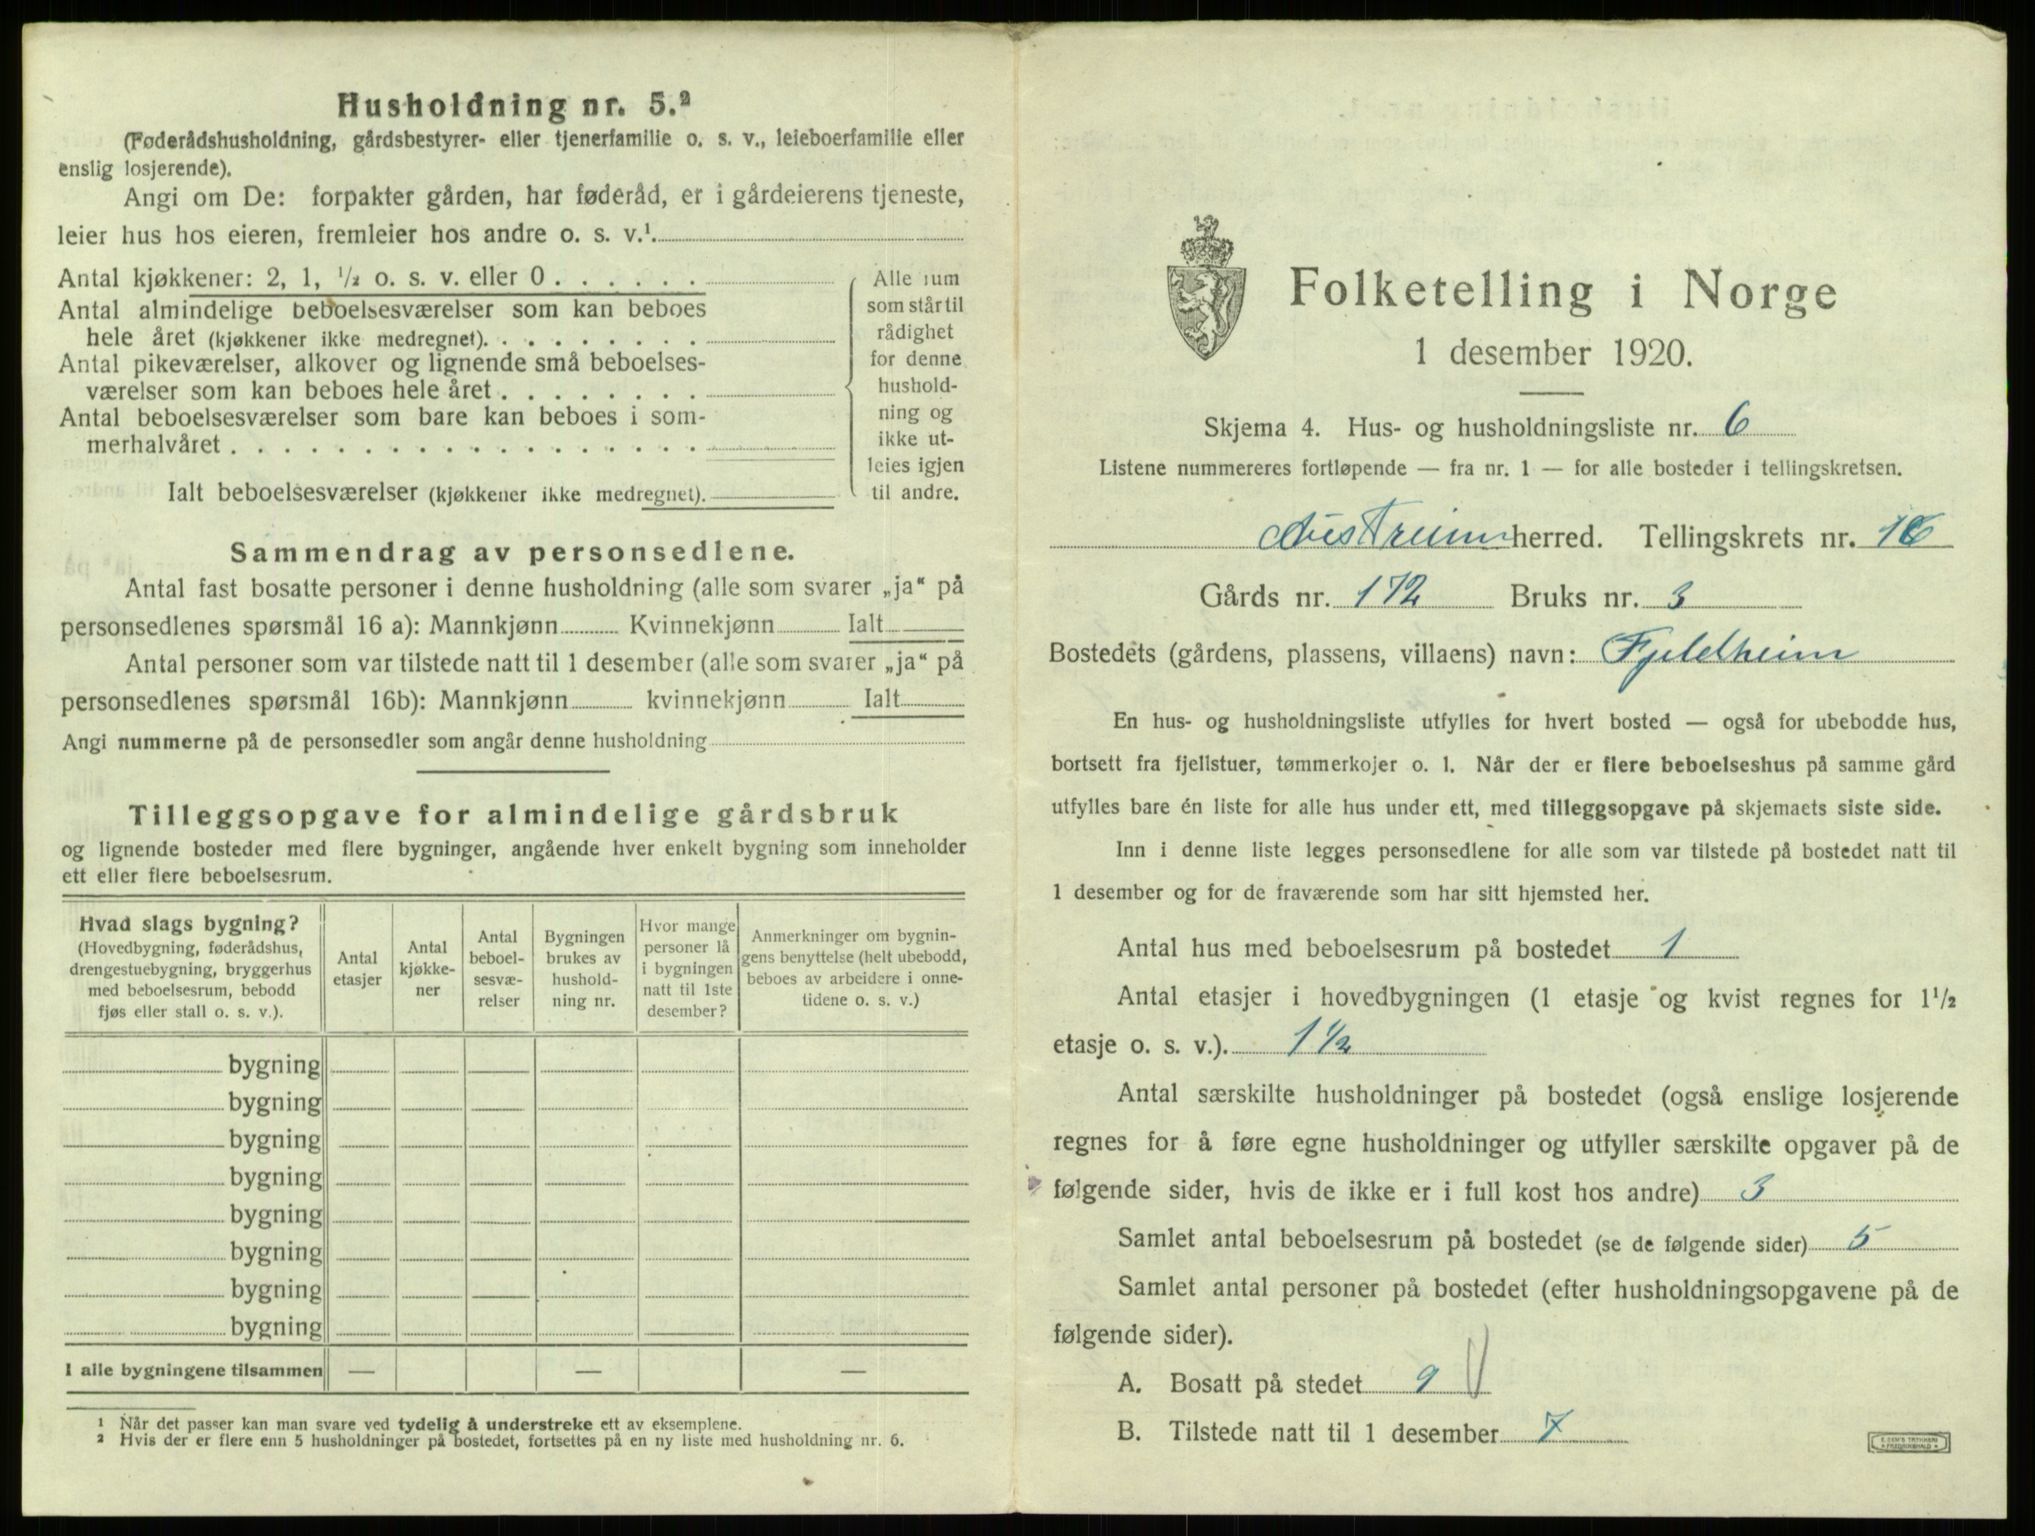 Husholdning nr. 5.²
(Føderådshusholdning, gårdsbestyrer- eller tjenerfamilie o. s. v., leieboerfamilie eller
enslig losjerende).
Angi om De: forpakter gården, har føderåd, er i gårdeierens tjeneste,
leier hus hos eieren, fremleier hos andre o. s. v.¹.
Antal kjøkkener: 2, 1, ½ o. s. v. eller 0 . . . . . .
Antal almindelige beboelsesværelser som kan beboes
hele året (kjøkkener ikke medregnet). . . . . . . . .
Antal pikeværelser, alkover og lignende små beboelses-
værelser som kan beboes hele året . . . . . . . .
Antal beboelsesværelser som bare kan beboes i som-
merhalvåret . . . . . . . . . . . . . . . . . .
Ialt beboelsesværelser (kjøkkener ikke medregnet).
Alle rum
som står til
rådighet
for denne
hushold-
ning og
ikke ut-
leies igjen
til andre.
Sammendrag av personsedlene.
Antal fast bosatte personer i denne husholdning (alle som svarer „ja“ på
personsedlenes spørsmål 16 a): Mannkjønn Kvinnekjønn Ialt
Antal personer som var tilstede natt til 1 desember (alle som svarer „ja“ på
personsedlenes spørsmål 16b): Mannkjønn kvinnekjønn Ialt
Angi nummerne på de personsedler som angår denne husholdning
Tilleggsopgave for almindelige gårdsbruk
og lignende bosteder med flere bygninger, angående hver enkelt bygning som inneholder
ett eller flere beboelsesrum.
Hvad slags bygning?
(Hovedbygning, føderådshus,
drengestuebygning, bryggerhus
med beboelsesrum, bebodd
fjøs eller stall o. s. v.).
Antal
etasjer
Antal
kjøkke-
ner
Antal
beboel-
sesvæ-
relser
Bygningen
brukes av
hushold-
ning nr.
Hvor mange
personer lå
i bygningen
natt til 1ste
desember?
Anmerkninger om bygnin-
gens benyttelse (helt ubebodd,
beboes av arbeidere i onne-
tidene o. s. v.)
bygning
bygning
bygning
bygning
bygning
bygning
bygning
bygning
I alle bygningene tilsammen — — —
¹ Når det passer kan man svare ved tydelig å understreke ett av eksemplene.
² Hvis der er flere enn 5 husholdninger på bostedet, fortsettes på en ny liste med husholdning nr. 6.
Folketelling i Norge
1 desember 1920.
Skjema 4. Hus- og husholdningsliste nr. 6
Listene nummereres fortløpende — fra nr. 1 — for alle bosteder i tellingskretsen.
Austreim herred. Tellingskrets nr. 16
Gårds nr. 172 Bruks nr. 3
Bostedets (gårdens, plassens, villaens) navn: Fjeldheim
En hus- og husholdningsliste utfylles for hvert bosted — også for ubebodde hus,
bortsett fra fjellstuer, tømmerkojer o. l. Når der er flere beboelseshus på samme gård
utfylles bare én liste for alle hus under ett, med tilleggsopgave på skjemaets siste side.
Inn i denne liste legges personsedlene for alle som var tilstede på bostedet natt til
1 desember og for de fraværende som har sitt hjemsted her.
Antal hus med beboelsesrum på bostedet 1
Antal etasjer i hovedbygningen (1 etasje og kvist regnes for 1½
etasje o. s. v.). 1½
Antal særskilte husholdninger på bostedet (også enslige losjerende
regnes for å føre egne husholdninger og utfyller særskilte opgaver på de
følgende sider, hvis de ikke er i full kost hos andre) 3
Samlet antal beboelsesrum på bostedet (se de følgende sider) 5
Samlet antal personer på bostedet (efter husholdningsopgavene på de
følgende sider).
A. Bosatt på stedet 9
B. Tilstede natt til 1 desember 7